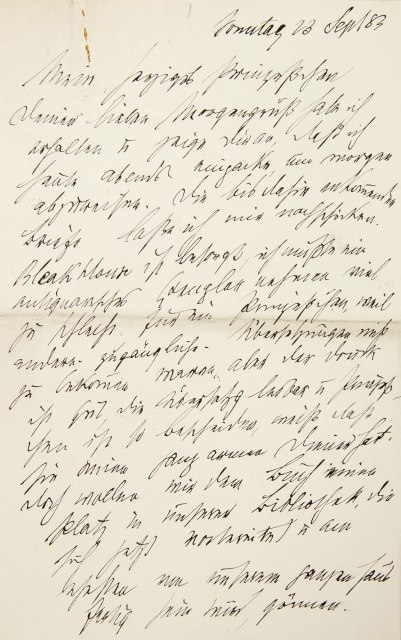 Sonntag 23 Sept 83
Mein herziges Prinzeßchen
Deinen lieben Morgengruß habe ich
erhalten u zeige Dir an, daß ich
heute abends einpacke, um morgen
abzureisen. Die bis dahin ankommenden
Briefe lasse ich mir nachschicken.
Bleakhouse ist besorgt, ich mußte ein
antiquarisches Exemplar nehmen, weil
zu schlecht für ein Prinzeßchen, weil
andere zugängliche Übersetzungen
zu bekommen waren, aber der Druck
ist gut die Übersetzg lesbar u Prinzeß-
chen ist so bescheiden, weiß daß
sie einen ganz armen Diener hat.
Doch wollen wir dem Buch einen
Platz in unserer Bibliothek, die
sich jetzt vorbereitet u am
ehesten von unserem ganzen Haus
fertig sein wird, gönnen.